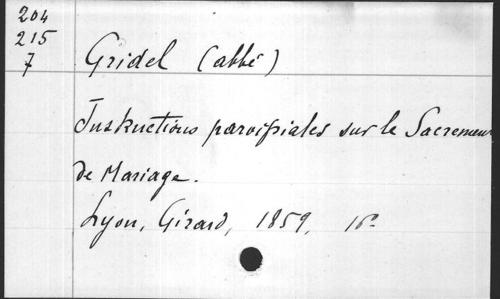 204
215
7
Gridel (abbé)
Instructions paroissiales sur le Sacremen
de Mariage.
Lyon, Girard, 1859, 16º